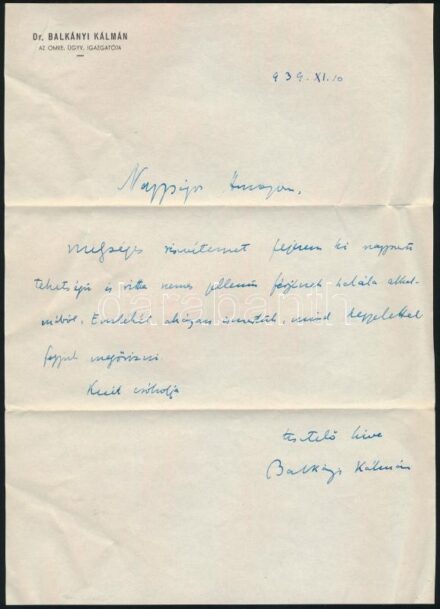 Dr. BALKÁNYI KÁLMÁN
AZ OMKE. ÜGYV. IGAZGATÓJA
939. XI. 10
Nagyságos Asszonyom,
mélységes részvétemet fejezem ki nagyszerű
tehetségű és ritka nemes jellemű férjének halála alkal-
mából. Emlékét akik ismertük, mind kegyelettel
fogjuk megőrizni
Kezeit csókolja
tisztelő híve
Balkányi Kálmán
darabanth